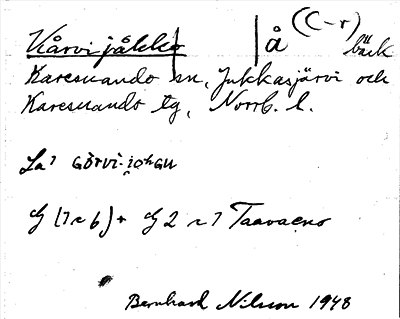 Kårvijåkko | å (C-r) bäck
Karesuando sn, Jukkasjärvi och
Karesuando tg, Norrb. l.
La? GÒrvi-johGu
Bernhard Nilsson 1948